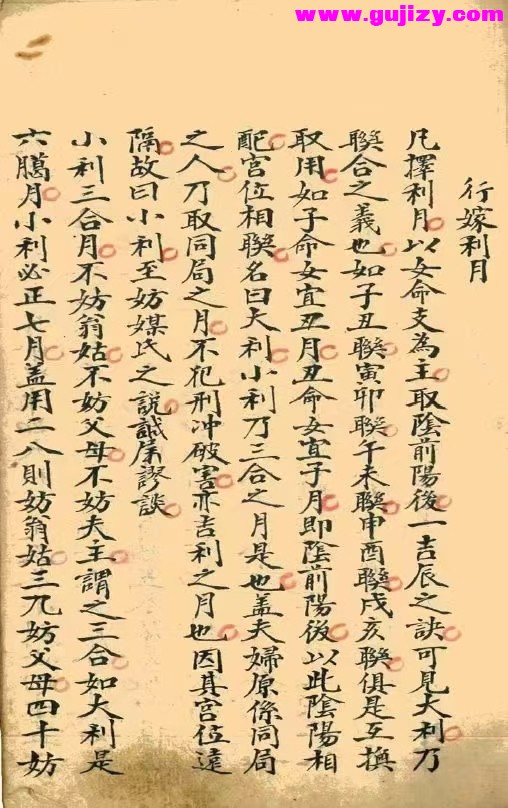 www.gujizy.com
行嫁利月
凡擇利月以女命支為主取陰前陽後一吉辰之訣可見大利乃
聯合之義也如子丑聯寅卯聯午未聯申酉聯戌亥聯俱是互換
取用如子命女宜丑月丑命女宜子月即陰前陽後以此陰陽相
配宮位相聯名曰大利小利乃三合之月是也盖夫婦原係同局
之人乃取同局之月不犯刑冲破害亦吉利之月也因其宮位遠
隔故曰小利至妨媒氏之說誠屬謬談
小利三合月不妨翁姑不妨父母不妨夫主謂之三合如大利是
六臈月小利必正七月盖用二八則妨翁姑三九妨父母四十妨